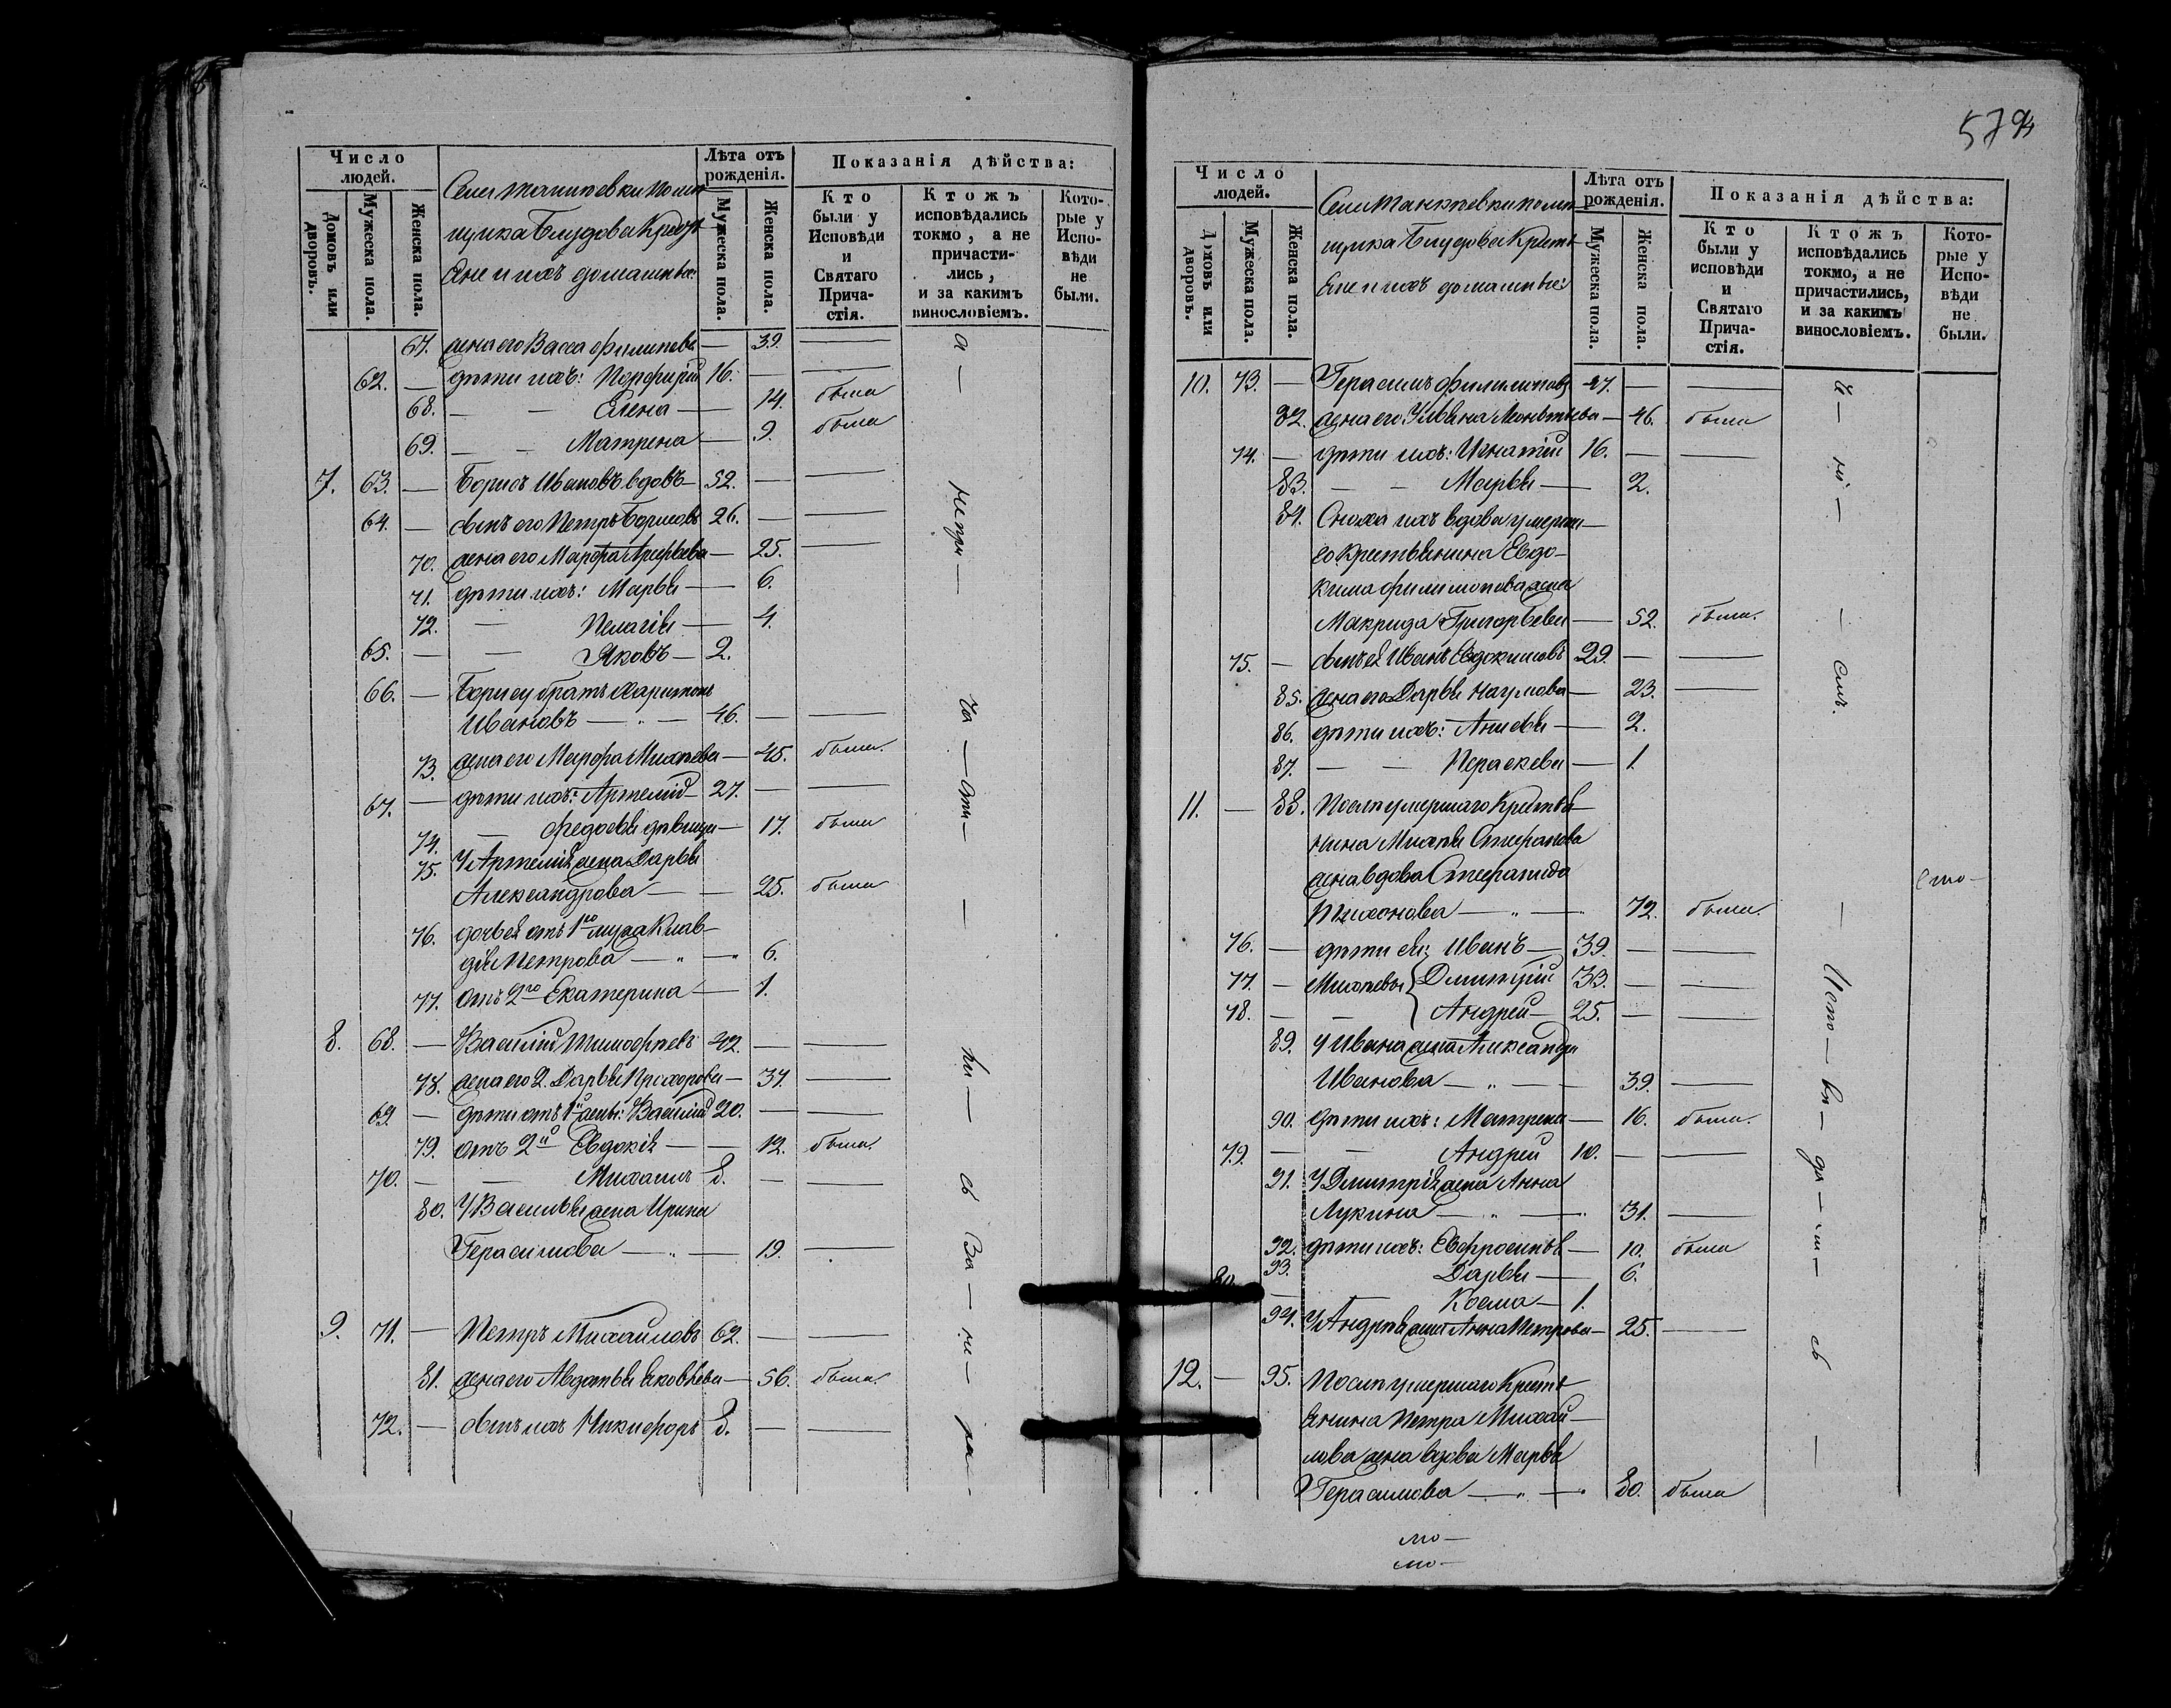 Число людей.
Домовъ или дворовъ.
Мужеска пола.
Женска пола.
Села помѣ-
щика Блудова Кресть-
яне и ихъ домашніе:
Лѣта отъ рожденія.
Мужеска пола.
Женска пола.
Показанія дѣйства:
Кто были у Исповѣди и Святаго Прича-стія.
Ктожъ исповѣдались токмо, а не причасти-лись, и за какимъ винословіемъ.
Кото-рые у Испо-вѣди не были.
67. жена его Васса Филипова — 39. —
62. — дѣти ихъ: Порфирій 16. — —
68. — — Елена — 14. была
69. — — Матрена — 9. была
7. 63. — Борисъ Ивановъ вдовъ — 52. — —
64. — сынъ его Петръ Борисовъ 26. — —
70. жена его Марфа Арефьева — 25. —
71. дѣти ихъ: Марья — 6.
72. — Пелагія — 4.
65. — — Яковъ — 2.
66. — Борису братъ Харитонъ
Ивановъ — „ — 46. — —
73. жена его Марфа Михѣева — 45. была.
67. — дѣти ихъ: Артемій — 27. — —
74. — Федосья дѣвица — 17. была
75. У Артемія жена Дарья
Александрова — — 25. была
76. дочь ея отъ 1го мужа Клав-
дія Петрова — „ — „ 6.
77. отъ 2го Екатерина — 1.
8. 68. — Василій Тимофѣевъ 42. — —
78. жена его 2. Дарья Прохорова — 37. —
69. — дѣти отъ 1й жены: Василій 20. — —
79. отъ 2й Евдокія — — 12. была.
70. — — Михаилъ 8. — —
80. У Василья жена Ирина
Герасимова — „ — 19. —
9. 71. — Петръ Михайловъ 62. — —
81. жена его Авдотья Яковлева — 56. была.
72. — сынъ ихъ Никифоръ 8. — —
579
Число людей.
Домовъ или дворовъ.
Мужеска пола.
Женска пола.
Села помѣ-
щика Блудова Кресть-
яне и ихъ домашніе:
Лѣта отъ рожденія.
Мужеска пола.
Женска пола.
Показанія дѣйства:
Кто были у исповѣди и Святаго Прича-стія.
Ктожъ исповѣдались токмо, а не причастились, и за какимъ винословіемъ.
Кото-рые у Испо-вѣди не были.
10. 73. — Герасимъ Филимоновъ 47. — —
82. жена его Ульяна Леонтьева — 46. была
74. — дѣти ихъ: Игнатій 16. — —
83. — — Марья — 2.
84. Сноха ихъ вдова умерша-
го Крестьянина Евдо-
кима Филимонова жена
Макрида Григорьева — 52. была.
75. — сынъ ея Иванъ Евдокимовъ 29. — —
85. жена его Дарья Наумова — 23. —
86. дѣти ихъ: Анисья — 2.
87. — — Параскева — 1.
11. — 88. Послѣ умершаго Крестья-
нина Михѣя Стефанова
жена вдова Стефанида
Тихонова — „ — „ 72. была.
76. — дѣти ея: Иванъ — 39. — —
77. — Михѣевы Дмитрій 33. — —
78. — — Андрей — 25. — —
89. У Ивана жена Александра
Иванова — „ — 39. —
90. дѣти ихъ: Матрена — 16. была.
79. — — Андрей 10. — —
91. У Дмитрія жена Анна
Лукина — „ — „ 31. —
92. дѣти ихъ: Евфросинья — 10. была
93. Дарья — 6.
80. — Косма — 1.
94. У Андрея жена Анна Петрова — 25. —
12. — 95. Послѣ умершаго Кресть-
янина Петра Михай-
лова жена вдова Марья
Герасимова — „ — „ 80. была